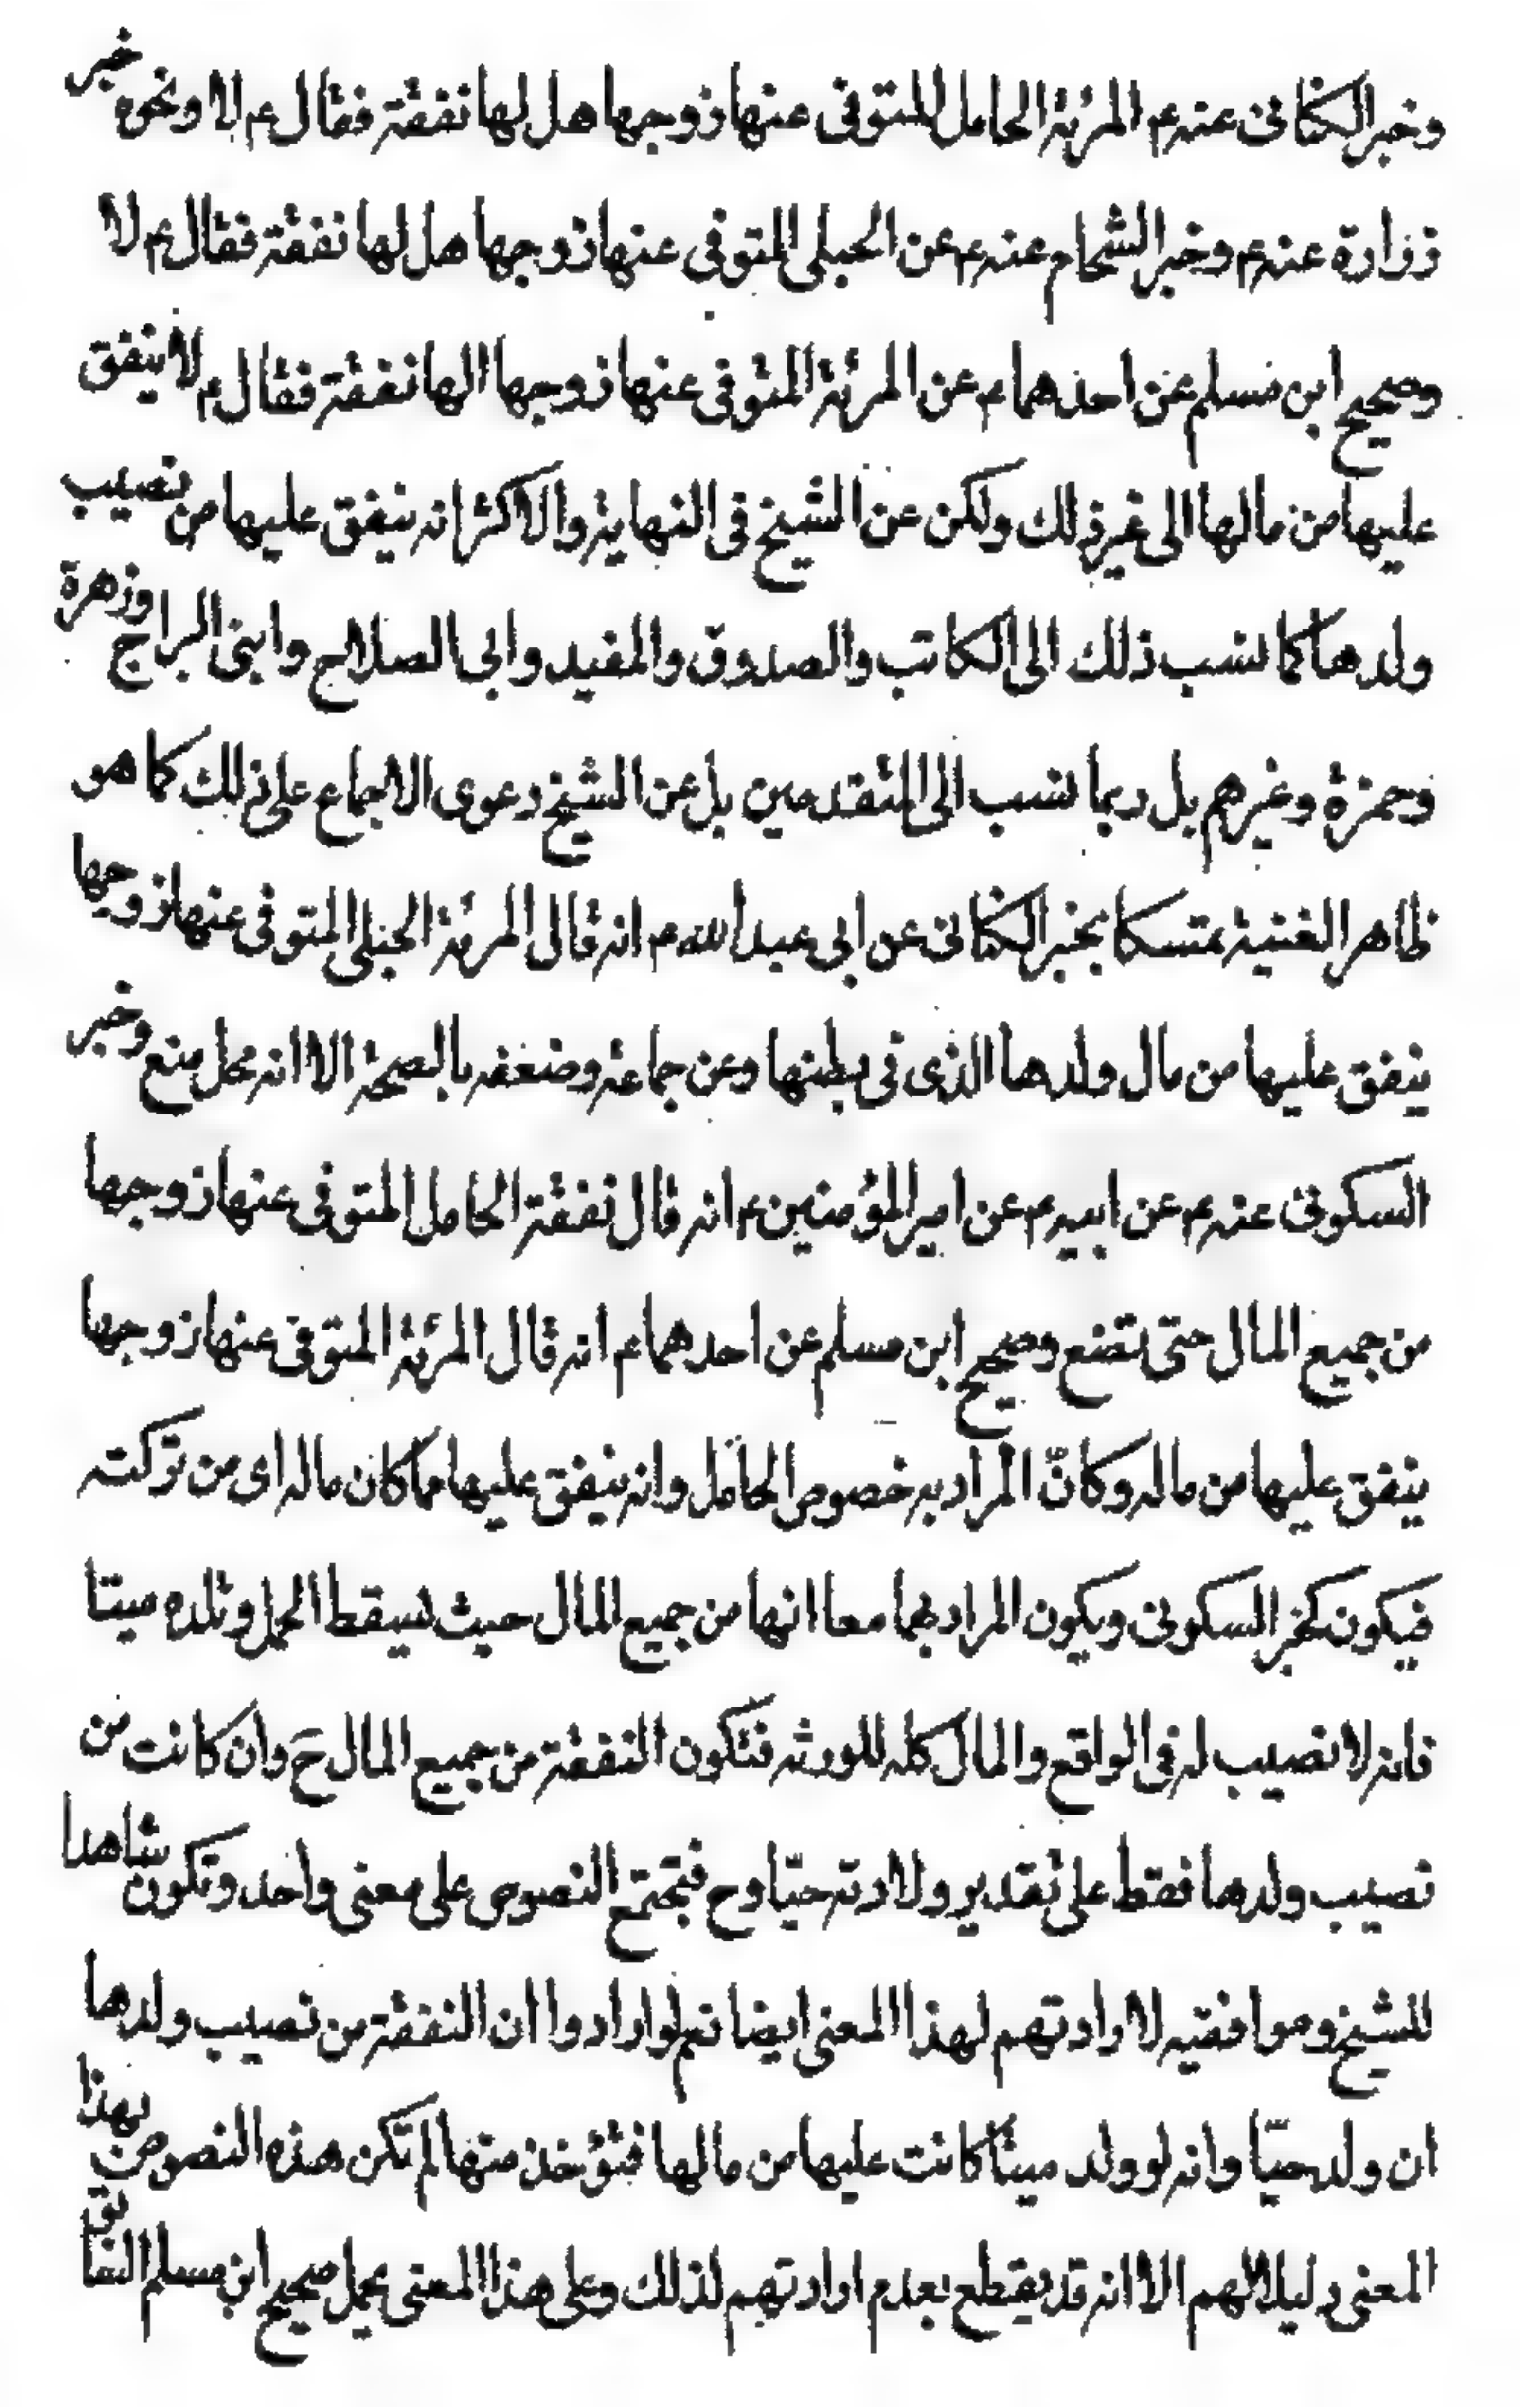 وخبر الكنانى عنه ع المرئة الحامل المتوفى عنها زوجها هل لها نفقة فقال ع لا ونحوه خبر
زرارة عنه ع وخبر الشحام عنه ع عن الحبلى المتوفى عنها زوجها هل لها نفقة فقال ع لا
وصحيح ابن مسلم عن احدهما ع عن المرئة المتوفى عنها زوجها الها نفقة فقال ع لا ينفق
عليها من مالها الى غير ذلك ولكن عن الشيخ فى النهاية والاكثر انه ينفق عليها من نصيب
ولدها كما نسب ذلك الى الكاتب والصدوق والمفيد وابى الصلاح وابنى البراج وزهرة
وحمزة وغيرهم بل ربما نسب الى المتقدمين بل عن الشيخ دعوى الاجماع على ذلك كما هو
ظاهر الغنية متمسكا بخبر الكنانى عن ابى عبد الله ع انه قال المرئة الحبلى المتوفى عنها زوجها
ينفق عليها من مال ولدها الذى فى بطنها وعن جماعة وضعفه بالصحة الا انه محل منع وخبر
السكونى عنه ع عن ابيه ع عن امير المؤمنين ع انه قال نفقة الحامل المتوفى عنها زوجها
من جميع المال حتى تضع وصحيح ابن مسلم عن احدهما ع انه قال المرئة المتوفى عنها زوجها
ينفق عليها من ماله وكانّ المراد به خصوص الحامل وانه ينفق عليها مما كان ماله اى من تركته
فيكون كخبر السكونى ويكون المراد بهما معا انها من جميع المال حيث يسقط الحمل وتلده ميتا
فانه لا نصيب له فى الواقع والمال كله للورثه فتكون النفقة من جميع المال ح وان كانت من
نصيب ولدها فقط على تقدير ولادته حيّا وح فتجتمع النصوص على معنى واحد وتكون شاهدا
للشيخ وموافقيه لارادتهم لهذا المعنى ايضا نعم لو ارادوا ان النفقة من نصيب ولدها
ان ولد حيّا وانه لو ولد ميتا كانت عليها من مالها فتؤخذ منها لم تكن هذه النصوص بهذا
المعنى دليلا لهم الا انه قد يقطع بعدم ارادتهم لذلك وعلى هذا المعنى يحمل صحيح ابن مسلم السابق